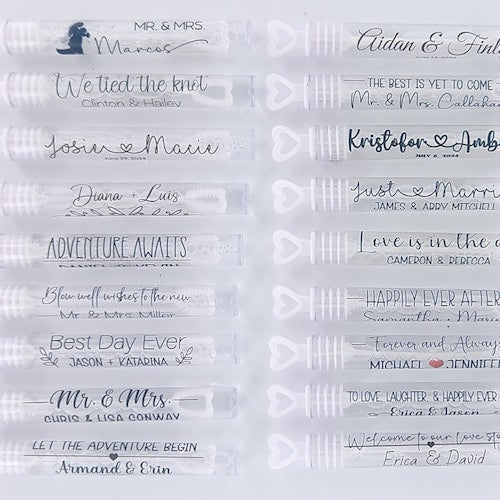 MR. & MRS.
Marcos
We tied the knot
Clinton & Hailey
Josie Macie
June 29, 2024
Diana + Luis
ADVENTURE AWAITS
Blow well wishes to the new
Mr & Mrs Miller
Best Day Ever
JASON + KATARINA
Mr. & Mrs.
CHRIS & LISA CONWAY
LET THE ADVENTURE BEGIN
Armand & Erin
Aidan & Finl
THE BEST IS YET TO COME
Mr. & Mrs. Callaha
Kristofor Amb
JULY 6, 2024
Just Marri
JAMES & ABBY MITCHELL
Love is in the a
CAMERON & REBECCA
HAPPILY EVER AFTER
Samantha Mari
Forever and Always
MICHAEL JENNIFE
TO LOVE, LAUGHTER, & HAPPILY EVER
Erica & Jason
Welcome to our love sto
Erica & David